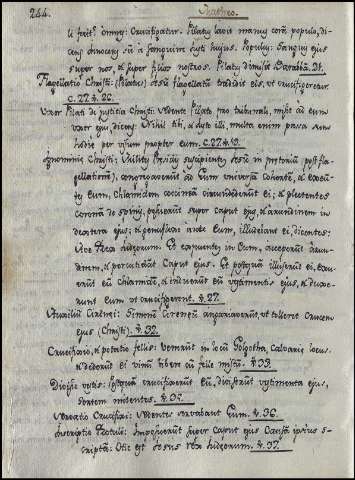 244. Mattheo.
li fecit? omnes: Crucifigatur. Pilatus lavit manus corã populo, di-
cens innocens sũ a sanguine justi hujus. Populus: Sanguis ejus
super nos, et super filios nostros. Pilatus dimisit Barabbã. 21.
Flagellatio Christi: (Pilatus) Jesũ flagellatũ tradidit eis, ut crucifigeretur.
c. 27. v. 26.
Uxor Pilati de justitia Christi: sedente Pilato pro tribunali, misit ad eum
uxor ejus, dicens: Nihil tibi, et justo illi, multa enim passa sum
hodie per visum propter eum. c. 27. v. 19.
Ignominiæ Christi: Milites Præsidis suscipientes Jesũ in prætoriũ (post fla-
gellationẽ), congregaverũt ad Eum universã Cohortẽ, et exuẽ-
tes Eum, Chlamidem coccineã circumdederũt ei; et plectentes
coronã de spinis, posuerũt super Caput ejus, et arundinem in
dextera ejus; et genuflexo ante Eum, illudebant ei, dicentes:
Ave Rex Judæorum. Et expuentes in Eum, acceperũt arun-
dinem, et percutiebãt Caput ejus. Et postquã illuserũt ei, exue-
rũt eũ Chlamide, et induerũt eũ vestimentis ejus, et duxe-
runt Eum ut crucifigerent. v. 27.
Auxiliũ Cirenei: Simonẽ Cirenẽũ angariaverũt, ut tolleret Crucem
ejus (Christi). v. 32.
Crucifixio, et potatio fellis: Venerũt in locũ Golgotha, Calvariæ locus.
et dederũt ei vinũ bibere cũ felle mistũ. v. 33.
Divisio vestis: Postquã crucifixerũt Eũ, diviserũt vestimenta ejus,
sortem mittentes. v. 35.
Servatio Crucifixi: sedentes servabant Eum. v. 36.
Inscriptio Tituli: Imposuerũt super Caput ejus Causã ipsius scri-
ptã: Hic est Jesus Rex Judæorum. v. 37.